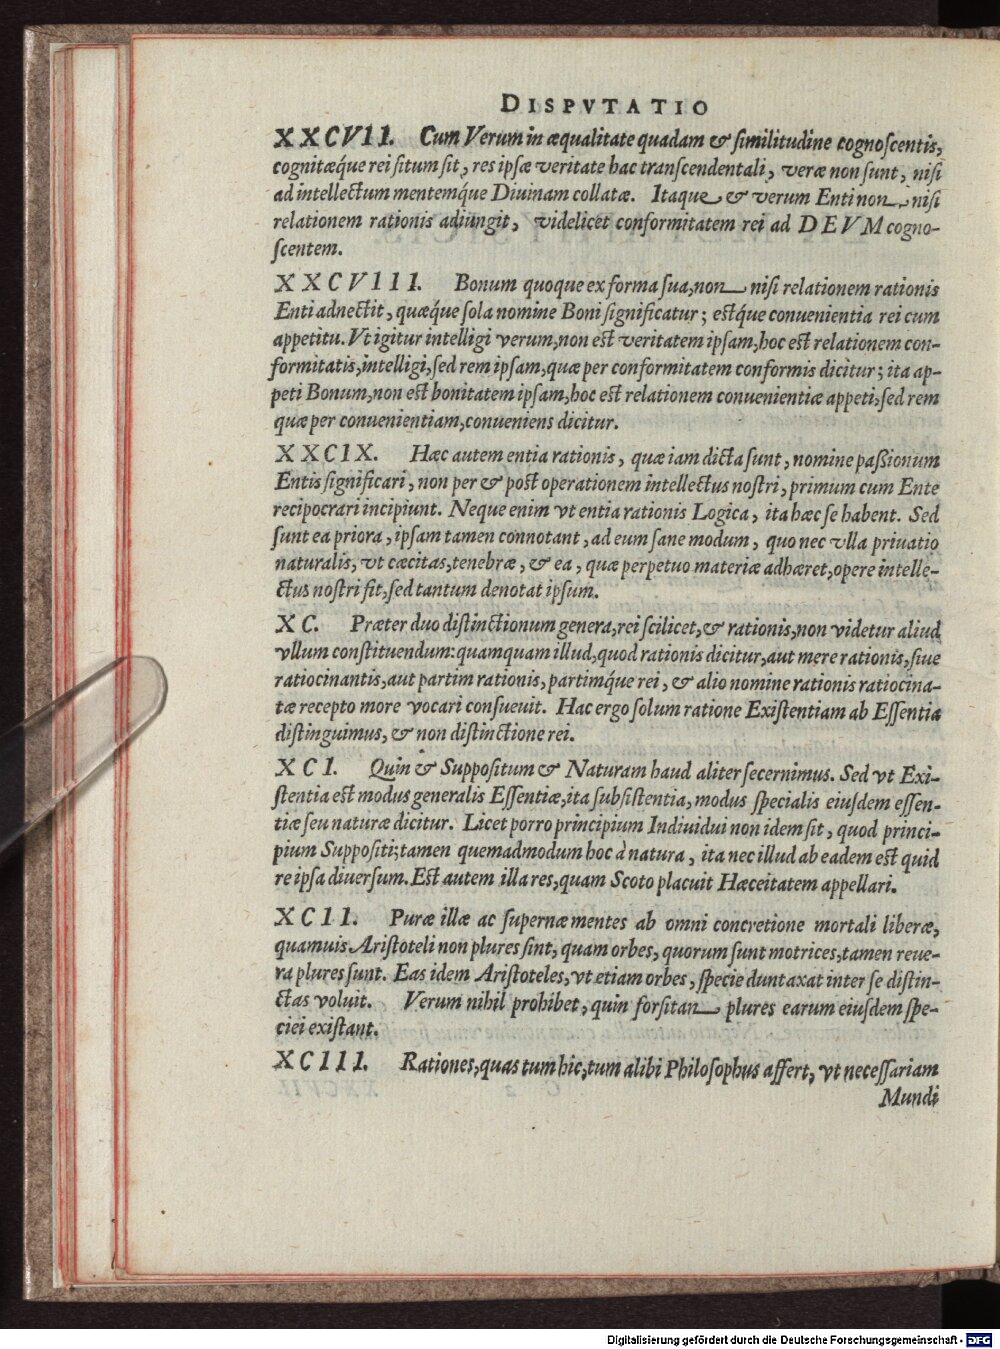 DISPVTATIO
XXCVII. Cum Verum in æqualitate quadam & similitudine cognoscentis,
cognitæq́ue rei situm sit, res ipsæ veritate hac transcendentali, veræ non sunt, nisi
ad intellectum mentemq́ue Diuinam collatæ. Itaque & verum Enti non nisi
relationem rationis adiungit, videlicet conformitatem rei ad DEVM cogno-
scentem.
XXCVIII. Bonum quoque ex forma sua, non nisi relationem rationis
Enti adnectit, quæq́ue sola nomine Boni significatur; estq́ue conuenientia rei cum
appetitu. Vt igitur intelligi verum, non est veritatem ipsam, hoc est relationem con-
formitatis, intelligi, sed rem ipsam, quæ per conformitatem conformis dicitur; ita ap-
peti Bonum, non est bonitatem ipsam, hoc est relationem conuenientiæ appeti, sed rem
quæ per conuenientiam, conueniens dicitur.
XXCIX. Hæc autem entia rationis, quæ iam dicta sunt, nomine paßionum
Entis significari, non per & post operationem intellectus nostri, primum cum Ente
recipocrari incipiunt. Neque enim vt entia rationis Logica, ita hæc se habent. Sed
sunt ea priora, ipsam tamen connotant, ad eum sane modum, quo nec vlla priuatio
naturalis, vt cæcitas, tenebræ, & ea, quæ perpetuo materiæ adhæret, opere intelle-
ctus nostri fit, sed tantum denotat ipsum.
XC. Præter duo distinctionum genera, rei scilicet, & rationis, non videtur aliud
vllum constituendum: quamquam illud, quod rationis dicitur, aut mere rationis, siue
ratiocinantis, aut partim rationis, partimq́ue rei, & alio nomine rationis ratiocina-
tæ recepto more vocari consueuit. Hac ergo solum ratione Existentiam ab Essentia
distinguimus, & non distinctione rei.
XCI. Quin & Suppositum & Naturam haud aliter secernimus. Sed vt Exi-
stentia est modus generalis Essentiæ, ita subsistentia, modus specialis eiusdem essen-
tiæ seu naturæ dicitur. Licet porro principium Indiuidui non idem sit, quod princi-
pium Suppositi; tamen quemadmodum hoc à natura, ita nec illud ab eadem est quid
re ipsa diuersum. Est autem illa res, quam Scoto placuit Hæceitatem appellari.
XCII. Puræ illæ ac supernæ mentes ab omni concretione mortali liberæ,
quamuis Aristoteli non plures sint, quam orbes, quorum sunt motrices, tamen reue-
ra plures sunt. Eas idem Aristoteles, vt etiam orbes, specie duntaxat inter se distin-
ctas voluit. Verum nihil prohibet, quin forsitan plures earum eiusdem spe-
ciei existant.
XCIII. Rationes, quas tum hic, tum alibi Philosophus affert, vt necessariam
Mundi
Digitalisierung gefördert durch die Deutsche Forschungsgemeinschaft - DFG